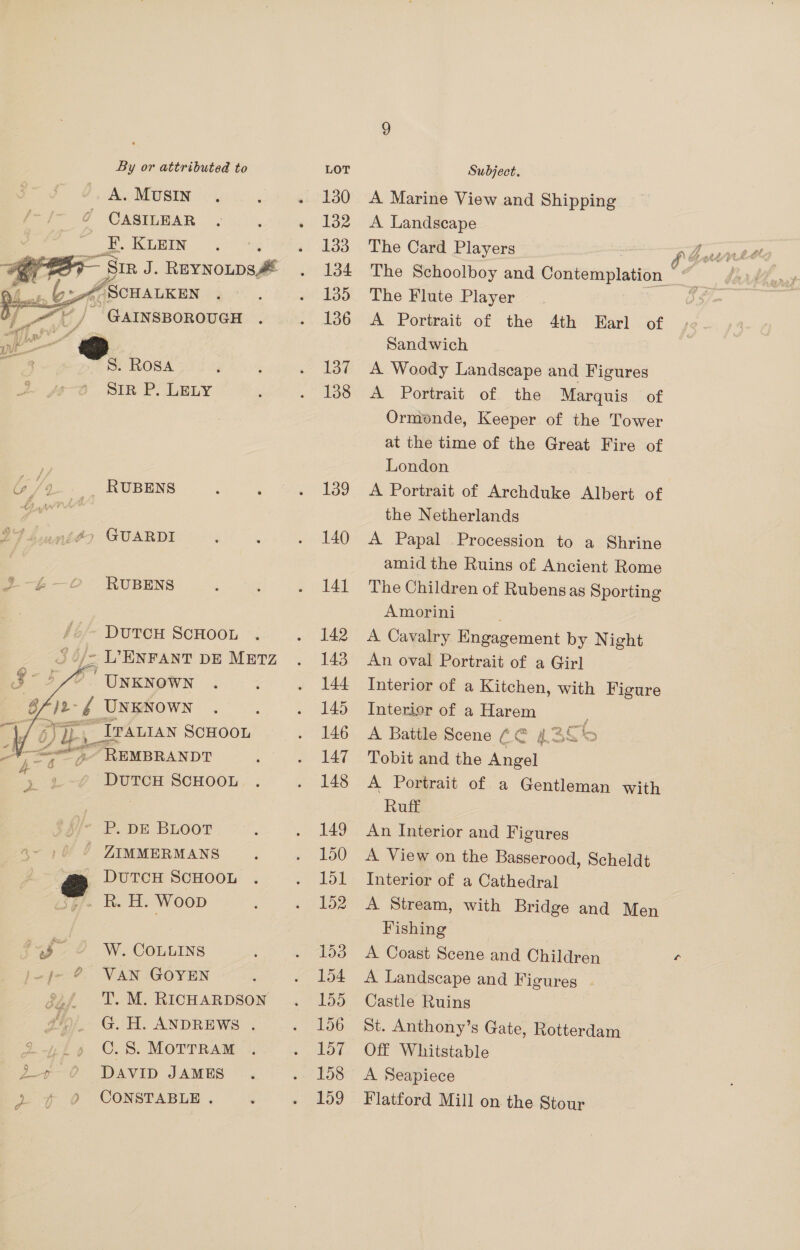 9
By or attributed to LOT Subject.
A. MUSIN . . . 130 A Marine View and Shipping
CASILEAR . . . 132 A Landscape
F. KLEIN . . . 133 The Card Players
SIR J. REYNOLDS . 134 The Schoolboy and Contemplation
SCHALKEN . . . 135 The Flute Player
GAINSBOROUGH . . 136 A Portrait of the 4th Earl of
Sandwich
S. ROSA . . . 137 A Woody Landscape and Figures
SIR P. LELY . . 138 A Portrait of the Marquis of
Ormonde, Keeper of the Tower
at the time of the Great Fire of
London
RUBENS . . . 139 A Portrait of Archduke Albert of
the Netherlands
GUARDI . . . 140 A Papal Procession to a Shrine
amid the Ruins of Ancient Rome
RUBENS . . . 141 The Children of Rubens as Sporting
Amorini
DUTCH SCHOOL . . 142 A Cavalry Engagement by Night
L'ENFANT DE METZ . 143 An oval Portrait of a Girl
UNKNOWN . . . 144 Interior of a Kitchen, with Figure
UNKNOWN . . . 145 Interior of a Harem
ITALIAN SCHOOL . 146 A Battle Scene
REMBRANDT . . 147 Tobit and the Angel
DUTCH SCHOOL . . 148 A Portrait of a Gentleman with
Ruff
P. DE BLOOT . . 149 An Interior and Figures
ZIMMERMANS . . 150 A View on the Basserood, Scheldt
DUTCH SCHOOL . . 151 Interior of a Cathedral
R. H. WOOD . . 152 A Stream, with Bridge and Men
Fishing
W. COLLINS . . 153 A Coast Scene and Children
VAN GOYEN . . 154 A Landscape and Figures
T. M. RICHARDSON . 155 Castle Ruins
G. H. ANDREWS . . 156 St. Anthony's Gate, Rotterdam
C. S. MOTTRAM . . 157 Off Whitstable
DAVID JAMES . . 158 A Seapiece
CONSTABLE . . . 159 Flatford Mill on the Stour